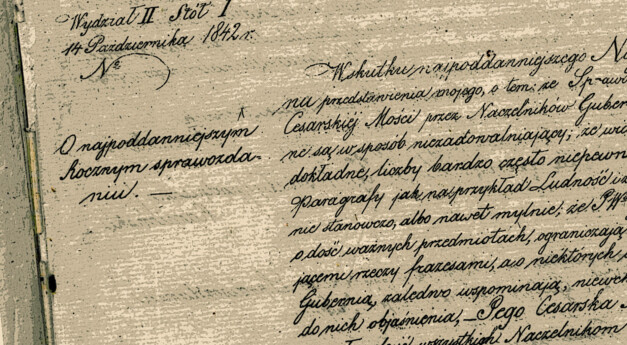 Wydział II Stół I
14 Października 1842 r.
№
O najpoddanniejszym
Rocznym sprawozda-
niu. —
Wskutku najpoddanniejszego
nu przedstawienia mojego, o tem: że
Cesarskiéj Mości przez Naczelników Guber
ne są w sposób niezadowalniający; że
dokładne, liczby bardzo często niepewn
Paragrafy jak na przykład Ludność i
nie stanowczo, albo nawet mylnie; że
o dość ważnych przedmiotach, ograniczają
jącemi rzeczy frazesami, a o niektórych
Gubernia, zaledwo wspominają, niewch
do nich objaśnienia, — Jego Cesarska
wszystkich Naczelnikom